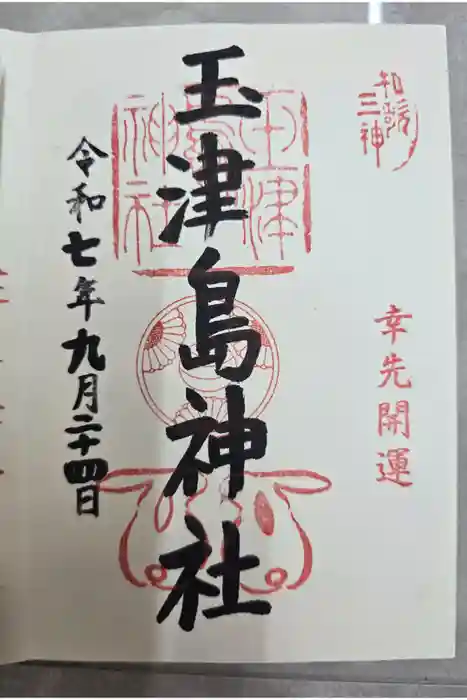 和歌三神
幸先開運
玉津島神社
玉津島神社
令和七年九月二十四日